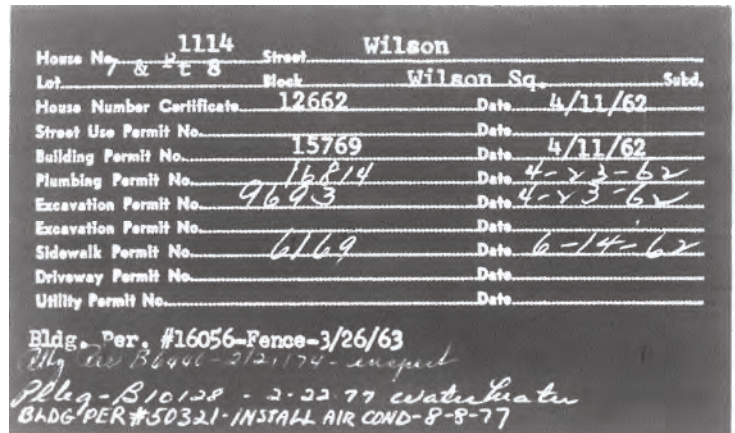 House No. 1114 Street Wilson
Lot 7 & Pt 8 Block Wilson Sq. Subd.
House Number Certificate 12662 Date 4/11/62
Street Use Permit No. Date
Building Permit No. 15769 Date 4/11/62
Plumbing Permit No. 16814 Date 4-23-62
Excavation Permit No. 9693 Date 4-23-62
Excavation Permit No. Date
Sidewalk Permit No. 6169 Date 6-14-62
Driveway Permit No. Date
Utility Permit No. Date
Bldg. Per. #16056-Fence-3/26/63
Plbg - B10128 - 2-22-77 water heater
BLDG PER #50321 - INSTALL AIR COND - 8-8-77